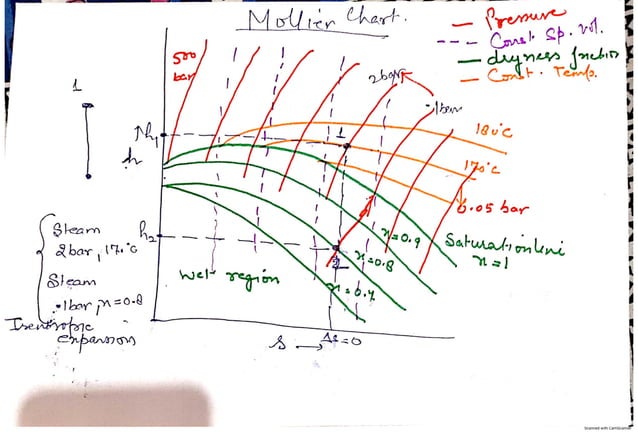 Mollier Chart.
Pressure
Const Sp. vol.
dryness fraction
Const. Temp.
500
bar
2bar
.1bar
1
h1
h
1
180°C
170°C
0.05 bar
h2
Steam
2bar, 170°C
Steam
.1bar, x=0.8
Isentropic
expansion
x=0.9
Saturation line
x=1
x=0.8
2
x=0.7
Wet region
s → Δs=0
Scanned with CamScanner